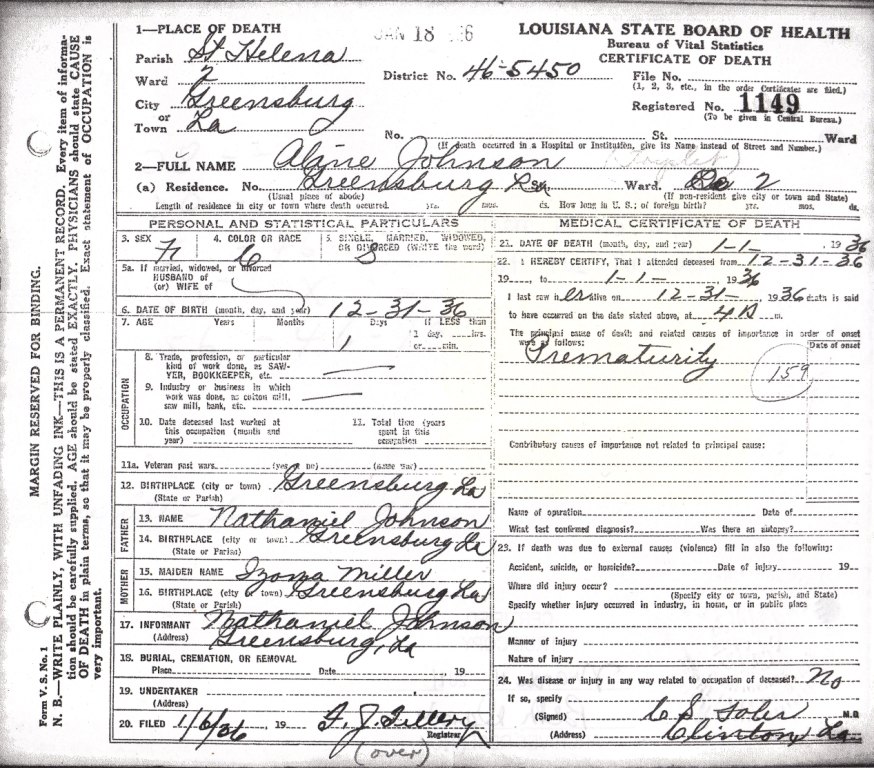 JAN 18
LOUISIANA STATE BOARD OF HEALTH
Bureau of Vital Statistics
CERTIFICATE OF DEATH
1—PLACE OF DEATH
Parish St Helena
Ward 2
City Greensburg
or
Town La
District No. 46-5450
File No.
(1, 2, 3, etc., in the order Certificates are filed.)
Registered No. 1149
(To be given in Central Bureau.)
No. St. Ward
(If death occurred in a Hospital or Institution, give its Name instead of Street and Number.)
2—FULL NAME Alaine Johnson
(a) Residence. No. Greensburg La St. Ward. 2
(Usual place of abode) (If non-resident give city or town and State)
Length of residence in city or town where death occurred. yrs. mos. ds. How long in U. S.; of foreign birth? yrs. mos. ds.
PERSONAL AND STATISTICAL PARTICULARS
3. SEX F 4. COLOR OR RACE C 5. SINGLE, MARRIED, WIDOWED, OR DIVORCED (WRITE the word) S
5a. If married, widowed, or divorced
HUSBAND of
(or) WIFE of
6. DATE OF BIRTH (month, day, and year) 12-31-36
7. AGE Years Months Days If LESS than
1 1 day, hrs.
or min.
OCCUPATION
8. Trade, profession, or particular
kind of work done, as SAW-
YER, BOOKKEEPER, etc.
9. Industry or business in which
work was done, as cotton mill,
saw mill, bank, etc.
10. Date deceased last worked at
this occupation (month and
year)
11. Total time (years
spent in this
occupation
11a. Veteran past wars (yes or no) (name war)
12. BIRTHPLACE (city or town) Greensburg La
(State or Parish)
FATHER
13. NAME Nathaniel Johnson
14. BIRTHPLACE (city or town) Greensburg La
(State or Parish)
MOTHER
15. MAIDEN NAME Izoma Miller
16. BIRTHPLACE (city or town) Greensburg La
(State or Parish)
17. INFORMANT Nathaniel Johnson
(Address) Greensburg, La
18. BURIAL, CREMATION, OR REMOVAL
Place Date 19
19. UNDERTAKER
(Address)
20. FILED 1/6/36 19 F. J. Tillery
Registrar
(over)
MEDICAL CERTIFICATE OF DEATH
21. DATE OF DEATH (month, day, and year) 1-1- , 1936
22. I HEREBY CERTIFY, That I attended deceased from 12-31-36
19 , to 1-1- 1936
I last saw her alive on 12-31- , 1936 death is said
to have occurred on the date stated above, at 4 A m.
The principal cause of death and related causes of importance in order of onset
were as follows: Date of onset
Prematurity
159
Contributory causes of importance not related to principal cause:
Name of operation Date of
What test confirmed diagnosis? Was there an autopsy?
23. If death was due to external causes (violence) fill in also the following:
Accident, suicide, or homicide? Date of injury 19
Where did injury occur?
(Specify city or town, parish, and State)
Specify whether injury occurred in industry, in home, or in public place
Manner of injury
Nature of injury
24. Was disease or injury in any way related to occupation of deceased? No
If so, specify
(Signed) C S M.D.
(Address) Clinton, La
Form V. S. No. 1
MARGIN RESERVED FOR BINDING.
N. B.—WRITE PLAINLY, WITH UNFADING INK—THIS IS A PERMANENT RECORD. Every item of informa-
tion should be carefully supplied. AGE should be stated EXACTLY. PHYSICIANS should state CAUSE
OF DEATH in plain terms, so that it may be properly classified. Exact statement of OCCUPATION is
very important.